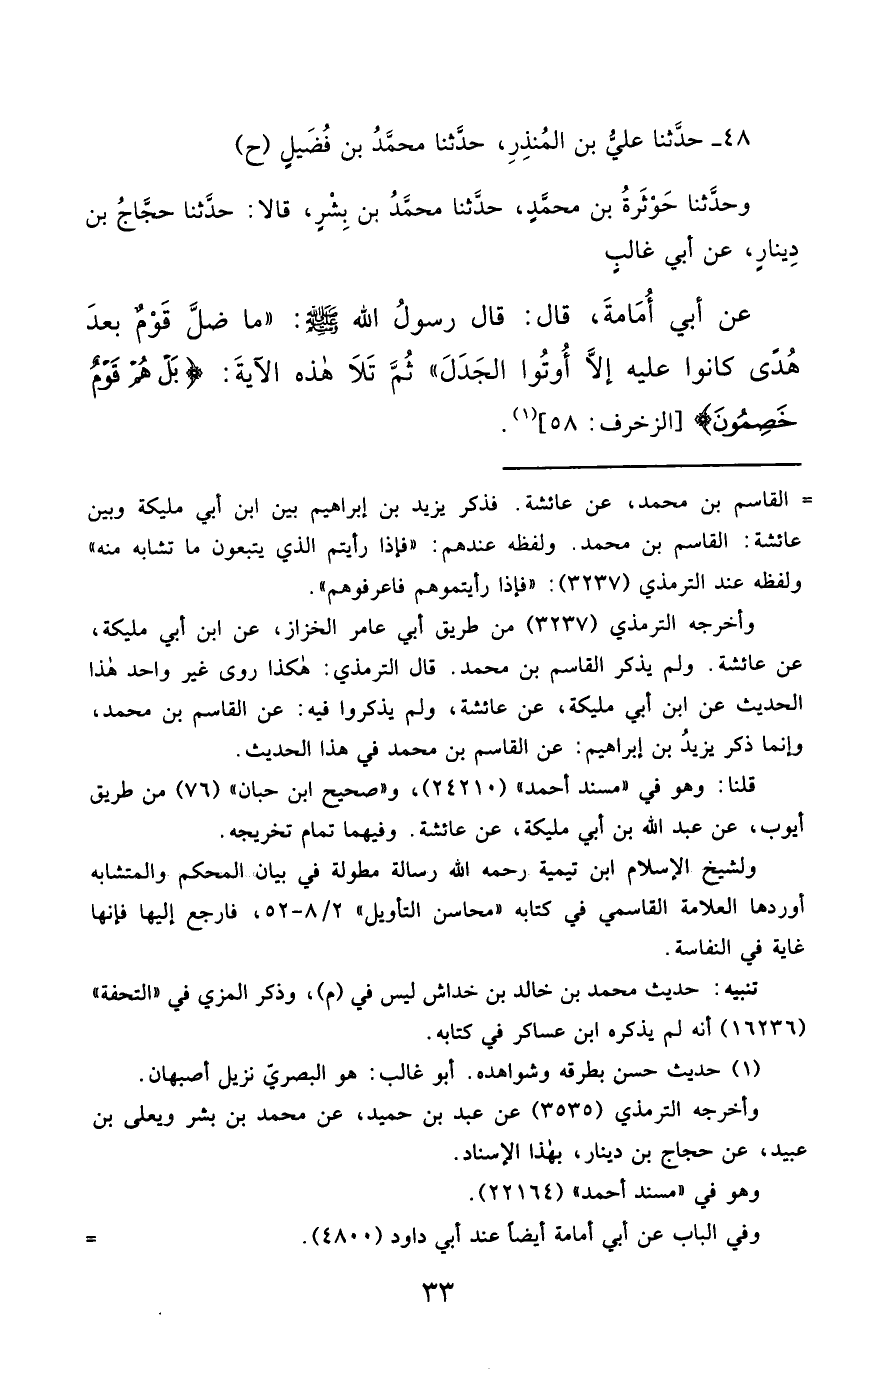 ٤٨ـ حدَّثنا عليُّ بن المُنذِرِ، حدَّثنا محمَّدُ بن فُضَيلٍ (ح)
وحدَّثنا حَوْثَرَةُ بن محمَّدٍ، حدَّثنا محمَّدُ بن بِشْرٍ، قالا: حدَّثنا حجَّاجُ بن
دِينارٍ، عن أبي غالبٍ
عن أبي أُمَامةَ، قال: قال رسولُ الله ﷺ: «ما ضلَّ قَوْمٌ بعدَ
هُدًى كانوا عليه إلاَّ أُوتُوا الجَدَلَ» ثُمَّ تَلَا هٰذه الآيةَ: ﴿بَلْ هُمْ قَوْمٌ
خَصِمُونَ﴾ [الزخرف: ٥٨](١).
= القاسم بن محمد، عن عائشة. فذكر يزيد بن إبراهيم بين ابن أبي مليكة وبين
عائشة: القاسم بن محمد. ولفظه عندهم: «فإذا رأيتم الذي يتبعون ما تشابه منه»
ولفظه عند الترمذي (٣٢٣٧): «فإذا رأيتموهم فاعرفوهم».
وأخرجه الترمذي (٣٢٣٧) من طريق أبي عامر الخزاز، عن ابن أبي مليكة،
عن عائشة. ولم يذكر القاسم بن محمد. قال الترمذي: هٰكذا روى غير واحد هٰذا
الحديث عن ابن أبي مليكة، عن عائشة، ولم يذكروا فيه: عن القاسم بن محمد،
وإنما ذكر يزيدُ بن إبراهيم: عن القاسم بن محمد في هذا الحديث.
قلنا: وهو في «مسند أحمد» (٢٤٢١٠)، و«صحيح ابن حبان» (٧٦) من طريق
أيوب، عن عبد الله بن أبي مليكة، عن عائشة. وفيهما تمام تخريجه.
ولشيخ الإسلام ابن تيمية رحمه الله رسالة مطولة في بيان المحكم والمتشابه
أوردها العلامة القاسمي في كتابه «محاسن التأويل» ٨/٢-٥٢، فارجع إليها فإنها
غاية في النفاسة.
تنبيه: حديث محمد بن خالد بن خداش ليس في (م)، وذكر المزي في «التحفة»
(١٦٢٣٦) أنه لم يذكره ابن عساكر في كتابه.
(١) حديث حسن بطرقه وشواهده. أبو غالب: هو البصريّ نزيل أصبهان.
وأخرجه الترمذي (٣٥٣٥) عن عبد بن حميد، عن محمد بن بشر ويعلى بن
عبيد، عن حجاج بن دينار، بهٰذا الإسناد.
وهو في «مسند أحمد» (٢٢١٦٤).
وفي الباب عن أبي أمامة أيضاً عند أبي داود (٤٨٠٠). =
٣٣